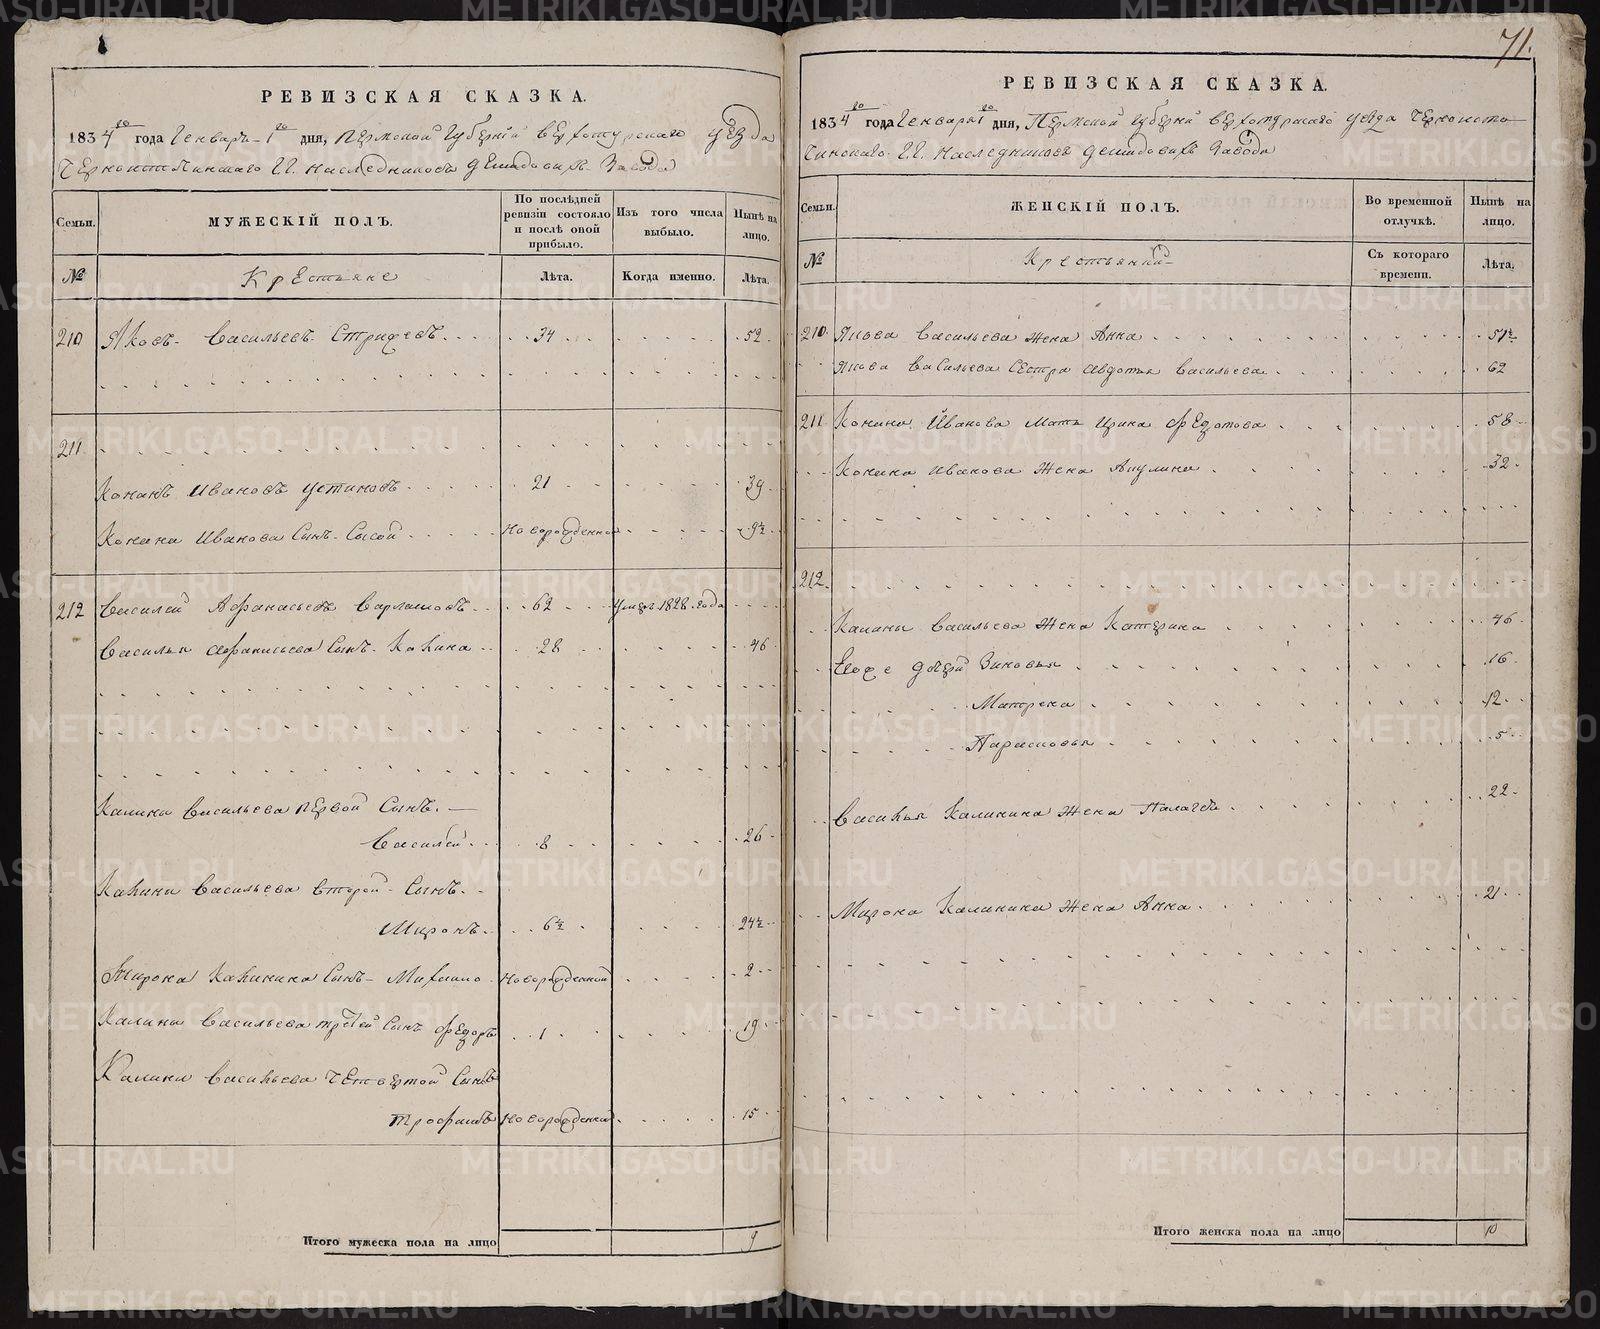 71.
РЕВИЗСКАЯ СКАЗКА.
1834го года Генваря 1го дня, Пермской Губернiи Верхотурскаго уезда
Черноисточинскаго Г.Г. Наследниковъ Демидовыхъ Завода
Семьи.
МУЖЕСКIЙ ПОЛЪ.
По послѣдней ревизiи состояло и послѣ оной прибыло.
Изъ того числа выбыло.
Нынѣ на лицо.
№
Крестьяне
Лѣта.
Когда именно.
Лѣта.
210 Яковъ Васильевъ Стрижевъ 34 52
211
Кононъ Ивановъ Устиновъ 21 39
Конана Иванова Сынъ Сысой Новорожденной 9½
212 Василей Афанасьевъ Варламовъ 62 Умеръ 1828 года
Василья Афанасьева Сынъ Калина 28 46
Калины Васильева первой Сынъ
Василей 8 26
Калины Васильева второй Сынъ
Миронъ 6½ 24½
Мирона Калинина Сынъ Михайло Новорожденной 2
Калины Васильева третей Сынъ Федоръ 1 19
Калины Васильева четвертой Сынъ
Трофимъ Новорожденной 15
Итого мужеска пола на лицо 9
РЕВИЗСКАЯ СКАЗКА.
1834го года Генваря 1го дня, Пермской Губернiи Верхотурскаго уезда Черноисто
чинскаго Г.Г. Наследниковъ Демидовыхъ Завода
Семьи.
ЖЕНСКIЙ ПОЛЪ.
Во временной отлучкѣ.
Нынѣ на лицо.
№
Крестьянки
Съ котораго времени.
Лѣта.
210 Якова Васильева жена Анна 51½
Якова Васильева Сестра Авдотья Васильева 62
211 Конана Иванова Мать Ирина Федотова 58
Конана Иванова жена Акулина 32
212
Калины Васильева жена Катерина 46
Ево же дочери Зиновья 16
Матрена 12
Парасковья 5
Василья Калинина жена Палагея 22
Мирона Калинина жена Анна 21
Итого женска пола на лицо 10
METRIKI.GASO-URAL.RU